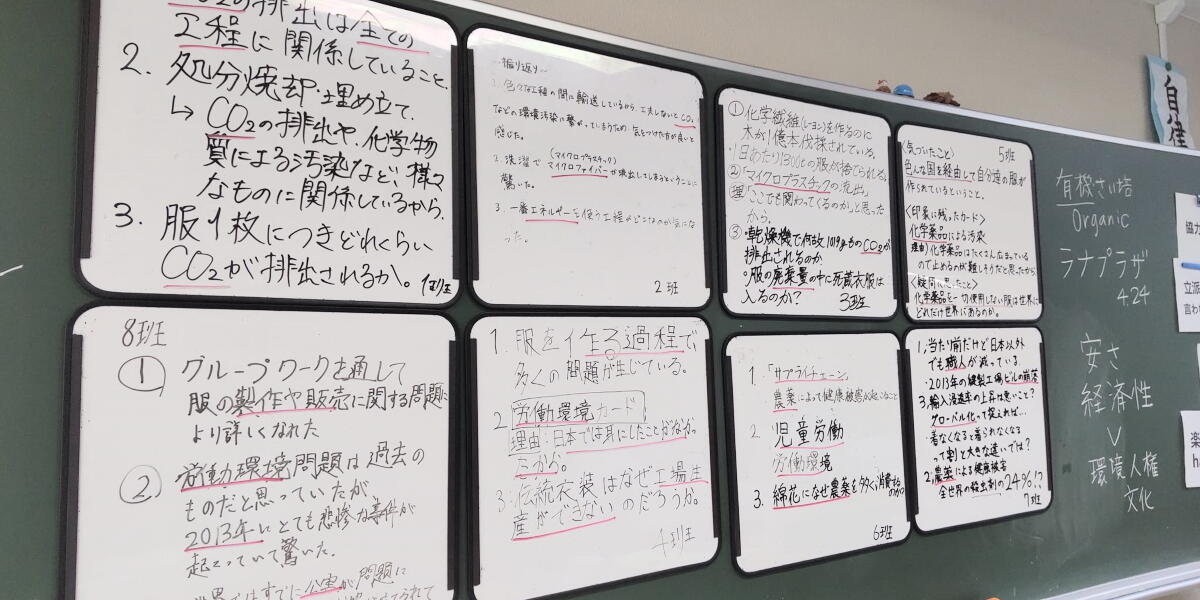 CO2の排出は全ての
工程に関係していること。
2. 処分焼却・埋め立て
↳ CO2の排出や、化学物
質による汚染など、様々
なものに関係しているから。
3. 服1枚につきどれくらい
CO2が排出されるか。 1班
~振り返り~
1. 色々な工程の間に輸送しているから、工夫しないとCO2
などの環境汚染に繋がってしまうため、気をつけた方が良いと
感じた。
2. 洗濯で(マイクロプラスチック)
マイクロファイバーが流出してしまうということに
驚いた。
3. 一番エネルギーを使う工程がどこなのか気にな
った。
2班
①化学繊維(レーヨン)を作るのに
木が1億本伐採されている。
・1日あたり1300tの服が捨てられる。
②「マイクロプラスチックの流出」
理「ここでも関わってくるのか」と思った
から。
③・乾燥機で何故1019gものCO2が
排出されるのか
・服の廃棄量の中に死蔵衣服は
入るのか? 3班
5班
〈気づいたこと〉
色んな国を経由して自分達の服が
作られているということ。
〈印象に残ったカード〉
化学薬品による汚染
理由)化学薬品はたくさん広まっている
ので止めるのが難しそうだと思ったから
〈疑問に思ったこと〉
化学薬品を一切使用しない服は世界に
どれだけ世界にあるのか。
8班
① グループワークを通して
服の製作や販売に関する問題に
より詳しくなれた
② 労働環境問題は過去の
ものだと思っていたが、
2013年にとても悲惨な事件が
起こっていて驚いた。
世界ではすでに公害が問題に
1. 服を作る過程で
多くの問題が生じている。
2. 労働環境カード
理由:日本では耳にしたことがなかっ
たから。
3. 伝統衣装はなぜ工場生
産ができないのだろうか。
4班
1. 「サプライチェーン」
農薬によって健康被害が起こること
2. 児童労働
労働環境
3. 綿花になぜ農薬を多く消費するのか?
6班
1, 当たり前だけど日本以外
でも職人が減っている。
・2013年の縫製工場ビルの崩落
3, 輸入浸透率の上昇は悪いこと?
グローバル化って捉えれば…
・着なくなると着られなくなる
って割と大きな違いでは?
2, 農薬による健康被害
全世界の殺虫剤の24%!?
7班
有機さい培
Organic
ラナプラザ
4.24
安さ
経済性
∨
環境人権
文化
自律
協力
立派
言わ
楽